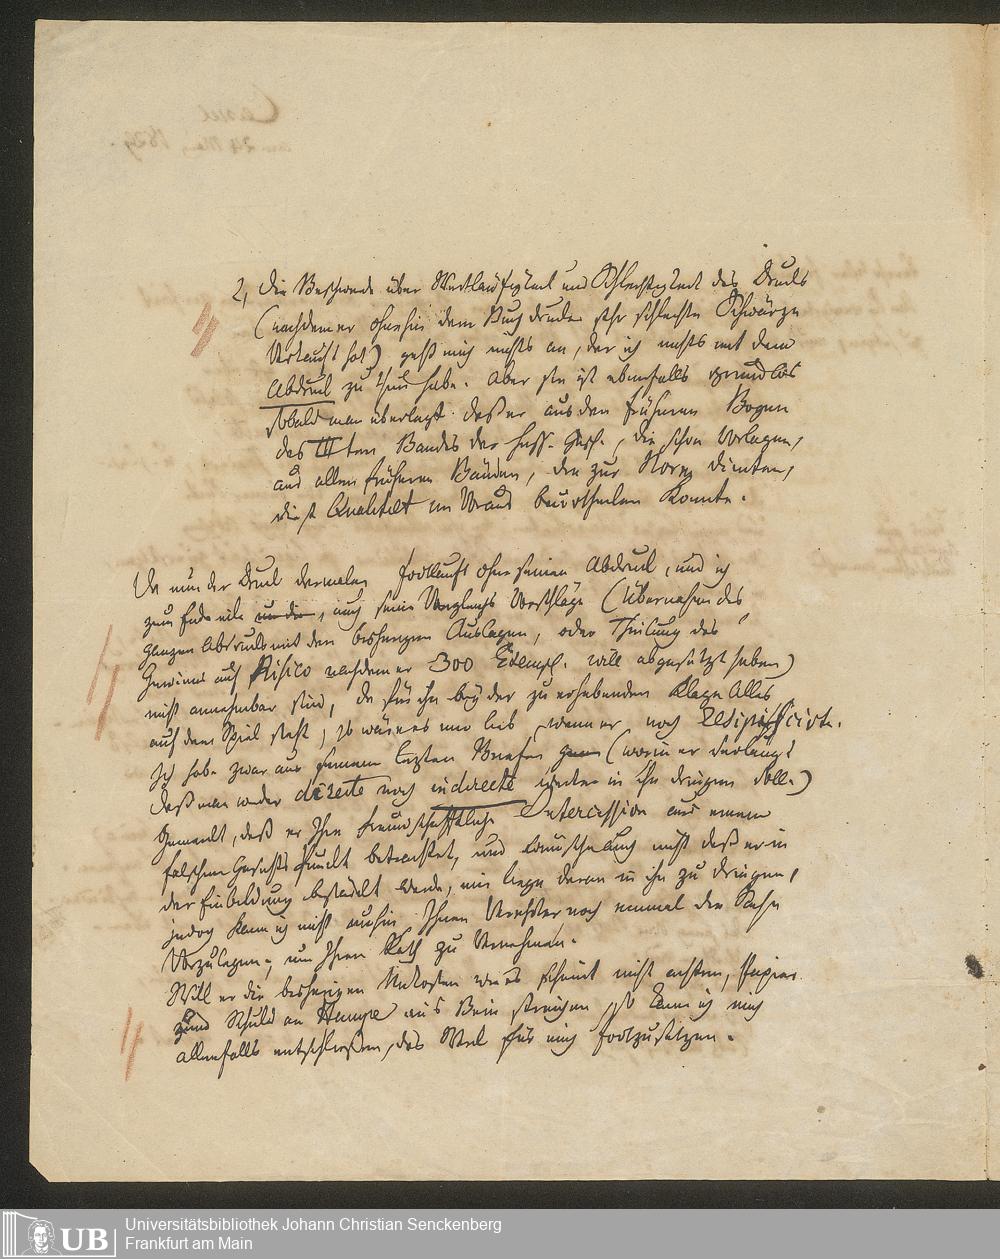 2, Die Beschwerde über Weitläufigkeit und Schlechtigkeit des Drucks
(nachdem er ohnehin dem Buchdrucker sehr schlechte Schwärze
verkauft hat) geht mich nichts an, der ich nichts mit dem
Abdruck zu thun habe. Aber sie ist ebenfalls grundlos
sobald man überlegt daß er aus den früheren Bogen
des IIIten Bandes der hess. Gesch., die schon vorlagen,
aus allen früheren Bänden, die zur Norm dienten,
diese Qualität im Voraus beurtheilen konnte.
Da nun der Druck dermalen fortläuft ohne seinen Abdruck, und ich
zum Ende eile, auch seine Vergleichs Vorschläge (Übernahme des
ganzen Abdrucks mit den bisherigen Auslagen, oder Theilung des
Gewinns auf Risico nachdem er 300 Exempl. will abgesetzt haben)
nicht annehmbar sind, da für ihn bey der zu erhebenden Klage Alles
auf dem Spiel steht, so wäre es mir lieb wenn er noch
Ich habe zwar aus seinem letzten Briefe (worin er verlangt
daß man weder directe noch indirecte weiter in ihn dringen solle)
gemerkt, daß er Ihre freundschaftliche Intercession aus einem
falschen Gesichtspunckt betrachtet, und wünsche auch nicht daß er in
der Einbildung bestärkt werde, mir liege daran in ihn zu dringen,
jedoch kann ich nicht umhin Ihnen Verehrter noch einmal die Sache
vorzulegen, um Ihren Rath zu vernehmen.
Will er die bisherigen Unkosten wie es scheint nicht achten, Papier
und Schuld an Hampe ans Bein streichen, so kann ich mich
allenfalls entschließen, das Werk für mich fortzusetzen.
Cassel
am 24 May 1829.
UB
Universitätsbibliothek Johann Christian Senckenberg
Frankfurt am Main